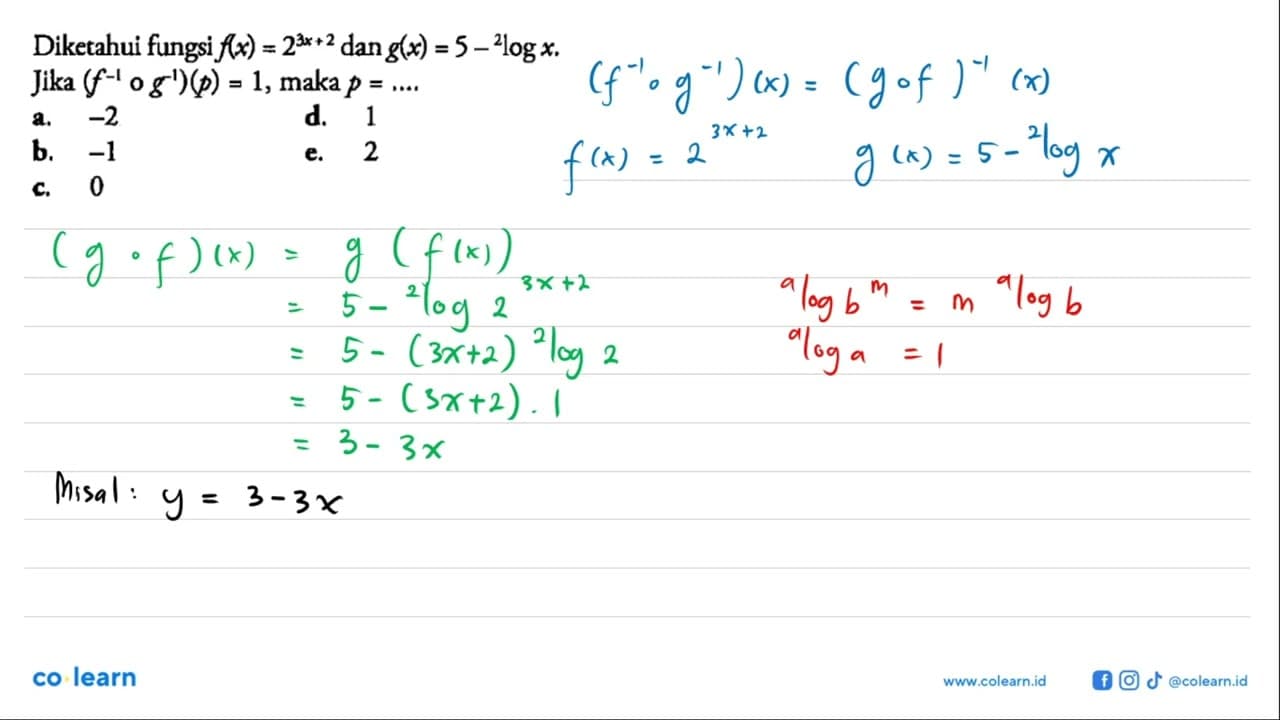 Diketahui fungsi f(x) = 2^(3x+2) dan g(x) = 5 – ²log x.
Jika (f⁻¹ o g⁻¹)(p) = 1, maka p = ....
a. –2 d. 1
b. –1 e. 2
c. 0
(f⁻¹ ∘ g⁻¹)(x) = (g ∘ f)⁻¹ (x)
f(x) = 2^(3x+2) g(x) = 5 - ²log x
(g ∘ f)(x) = g (f(x))
= 5 - ²log 2^(3x+2)
= 5 - (3x+2) ²log 2
= 5 - (3x+2) . 1
= 3 - 3x
ᵃlog bᵐ = m ᵃlog b
ᵃlog a = 1
Misal : y = 3 - 3x
co learn
www.colearn.id @colearn.id